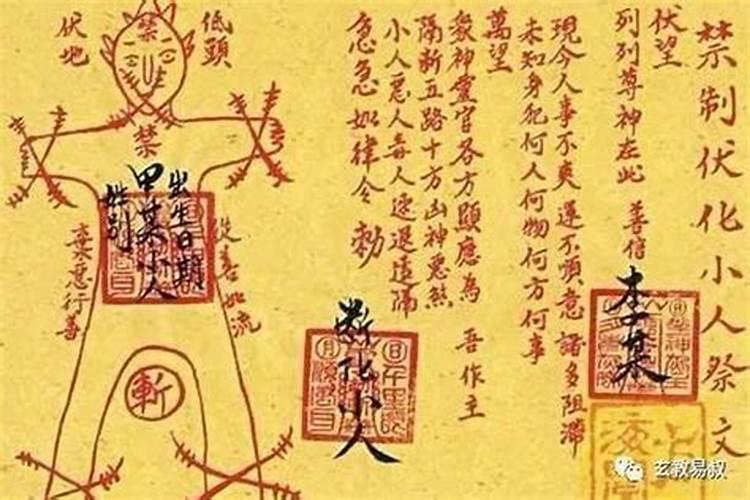 禁制伏化小人祭文
伏望
列列尊神在此 善信 李某
現今人事不爽 運不順意 諸多阻滯
未知身犯何人何物何方何事
萬望
眾神靈官各方顯應為 吾作主
隔断五路十方凶神惡煞
小人惡人毒人速退遠隔
急急如律令 勅
断化小人
低頭
伏地
禁
禁
出生日期
甲某小人
姓别
從善如流
棄惡行善
斬
玄教易叔